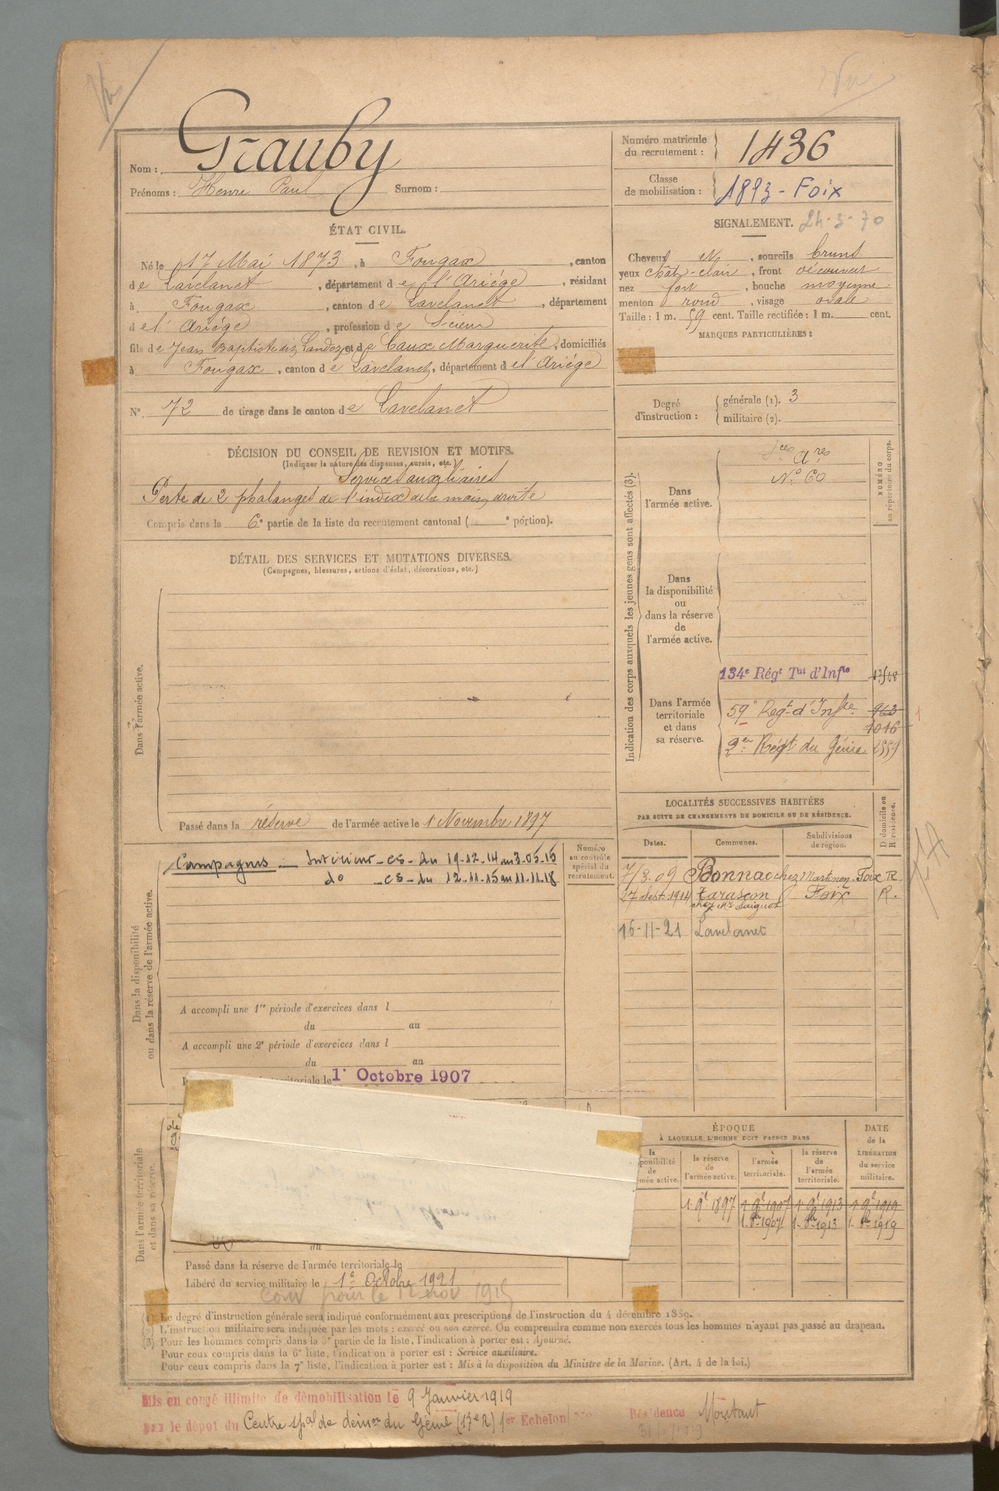 Grauby
Nom :
Prénoms : Henri Paul Surnom :
Numéro matricule du recrutement : 1436
Classe de mobilisation : 1893 - Foix
ÉTAT CIVIL.
Né le 17 Mai 1873, à Fougax, canton
de Lavelanet, département de l'Ariège, résidant
à Fougax, canton de Lavelanet, département
de l'Ariège, profession de Scieur
fils de Jean Baptiste et de Caux Marguerite, domiciliés
à Fougax, canton de Lavelanet, département de l'Ariège
N° 72 de tirage dans le canton de Lavelanet
SIGNALEMENT. 24-3-70
Cheveux , sourcils bruns
yeux chât-clair, front découvert
nez fort, bouche moyenne
menton rond, visage ovale
Taille : 1 m. 59 cent. Taille rectifiée : 1 m. cent.
MARQUES PARTICULIÈRES :
Degré d'instruction : générale (1). 3
militaire (2).
DÉCISION DU CONSEIL DE REVISION ET MOTIFS.
(Indiquer la nature des dispenses, sursis, etc.)
Services auxiliaires
Perte de 2 phalanges de l'index de la main droite
Compris dans la 6e partie de la liste du recrutement cantonal ( e portion).
DÉTAIL DES SERVICES ET MUTATIONS DIVERSES.
(Campagnes, blessures, actions d'éclat, décorations, etc.)
Dans l'armée active.
Passé dans la réserve de l'armée active le 1 Novembre 1897
Indication des corps auxquels les jeunes gens sont affectés (3).
NUMÉRO au répertoire du corps.
Dans l'armée active.
N° 60
Dans la disponibilité ou dans la réserve de l'armée active.
Dans l'armée territoriale et dans sa réserve.
134e Régt Tal d'Infie
59e Regt d'Infie 963
1016
2e Régt du Génie
LOCALITÉS SUCCESSIVES HABITÉES
PAR SUITE DE CHANGEMENTS DE DOMICILE OU DE RÉSIDENCE.
Dates. Communes. Subdivisions de région. D domicile ou R résidence.
7/3.09 Bonnac chez Foix R.
27 Sept 1914 Tarascon Foix R.
16-11-21 Lavelanet
Dans la disponibilité ou dans la réserve de l'armée active.
Numéro au contrôle spécial du recrutement.
Campagnes - Intérieur - CS - du 19-12-14 au 3-05-15
do - CS - du 12.11.15 au 11.11.18
A accompli une 1re période d'exercices dans l
du au
A accompli une 2e période d'exercices dans l
du au
territoriale le 1er Octobre 1907
Dans l'armée territoriale et dans sa réserve.
ÉPOQUE
À LAQUELLE L'HOMME DOIT PASSER DANS
la réserve de l'armée active.
l'armée territoriale.
la réserve de l'armée territoriale.
DATE de la LIBÉRATION du service militaire.
Passé dans la réserve de l'armée territoriale le
Libéré du service militaire le 1er Octobre 1921
(1) Le degré d'instruction générale sera indiqué conformément aux prescriptions de l'instruction du 4 décembre 1889.
(2) L'instruction militaire sera indiquée par les mots : exercé ou non exercé. On comprendra comme non exercés tous les hommes n'ayant pas passé au drapeau.
(3) Pour les hommes compris dans la 5e partie de la liste, l'indication à porter est : Ajourné.
Pour ceux compris dans la 6e liste, l'indication à porter est : Service auxiliaire.
Pour ceux compris dans la 7e liste, l'indication à porter est : Mis à la disposition du Ministre de la Marine. (Art. 4 de la loi.)
Mis en congé illimité de démobilisation le 9 Janvier 1919
par le dépôt du Centre spal de du Génie (17e R) 1er Echelon
Résidence